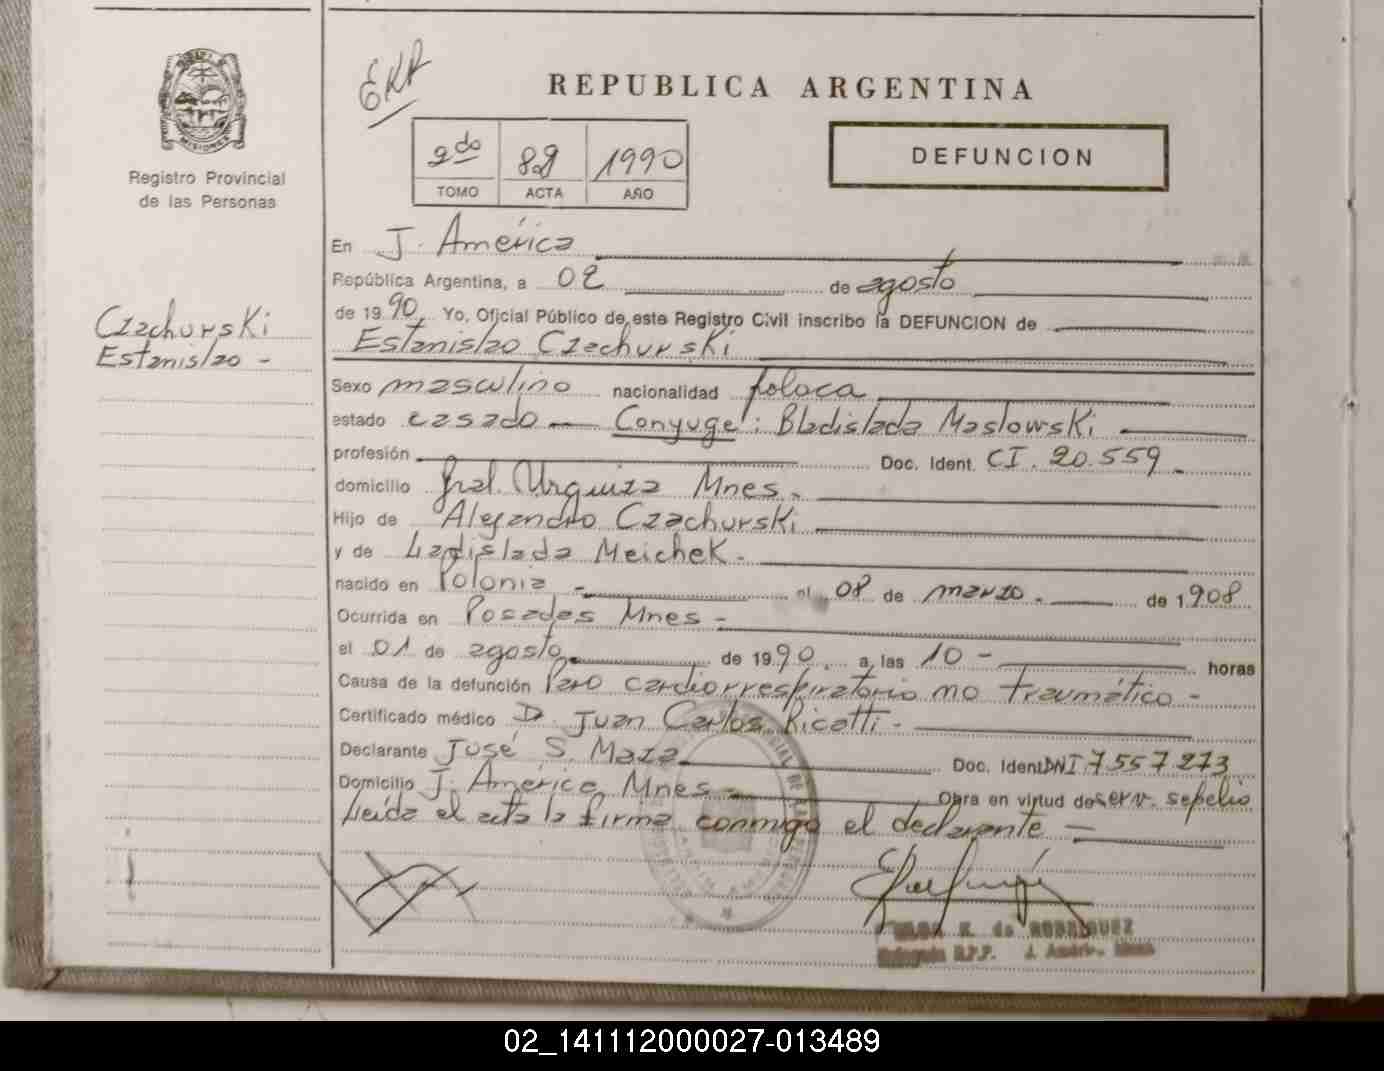 REPUBLICA ARGENTINA
2do 89 1990
TOMO ACTA AÑO
DEFUNCION
MISIONES
Registro Provincial
de las Personas
Czachurski
Estanislao -
En J. América
República Argentina, a 02 de agosto
de 1990, Yo, Oficial Público de este Registro Civil inscribo la DEFUNCION de
Estanislao Czachurski
Sexo masculino nacionalidad polaca
estado casado — Conyuge: Bladislada Maslowski
profesión Doc. Ident. CI. 20.559 -
domicilio Gral. Urquiza Mnes -
Hijo de Alejandro Czachurski
y de Ladislada Meichek -
nacido en Polonia - el 08 de marzo - de 1.908
Ocurrida en Posadas Mnes -
el 01 de agosto de 1990, a las 10 - horas
Causa de la defunción Paro cardiorrespiratorio no traumático -
Certificado médico D. Juan Carlos Ricatti -
Declarante José S. Maza Doc. Ident. DNI 7557273
Domicilio J. América Mnes - Obra en virtud de serv. sepelio
Leida el acta la firma conmigo el declarante —
de RODRIGUEZ
R.P.P. J. Améric.
02_141112000027-013489